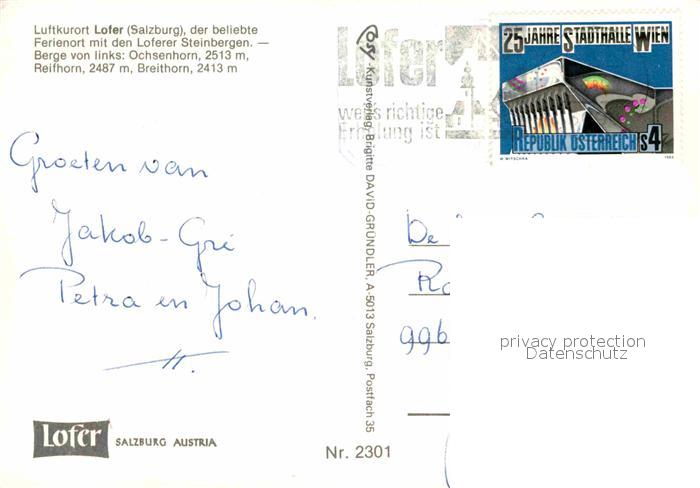 Luftkurort Lofer (Salzburg), der beliebte
Ferienort mit den Loferer Steinbergen. —
Berge von links: Ochsenhorn, 2513 m,
Reifhorn, 2487 m, Breithorn, 2413 m
Groeten van
Jakob-Gré
Petra en Johan.
Lofer
SALZBURG AUSTRIA
Kunstverlag Brigitte DAVID-GRÜNDLER, A-5013 Salzburg, Postfach 35
Nr. 2301
Lofer
wo's richtige
Erholung ist
25 JAHRE STADTHALLE WIEN
REPUBLIK ÖSTERREICH S4
De
996
privacy protection
Datenschutz